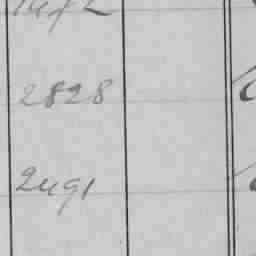 2828
2491